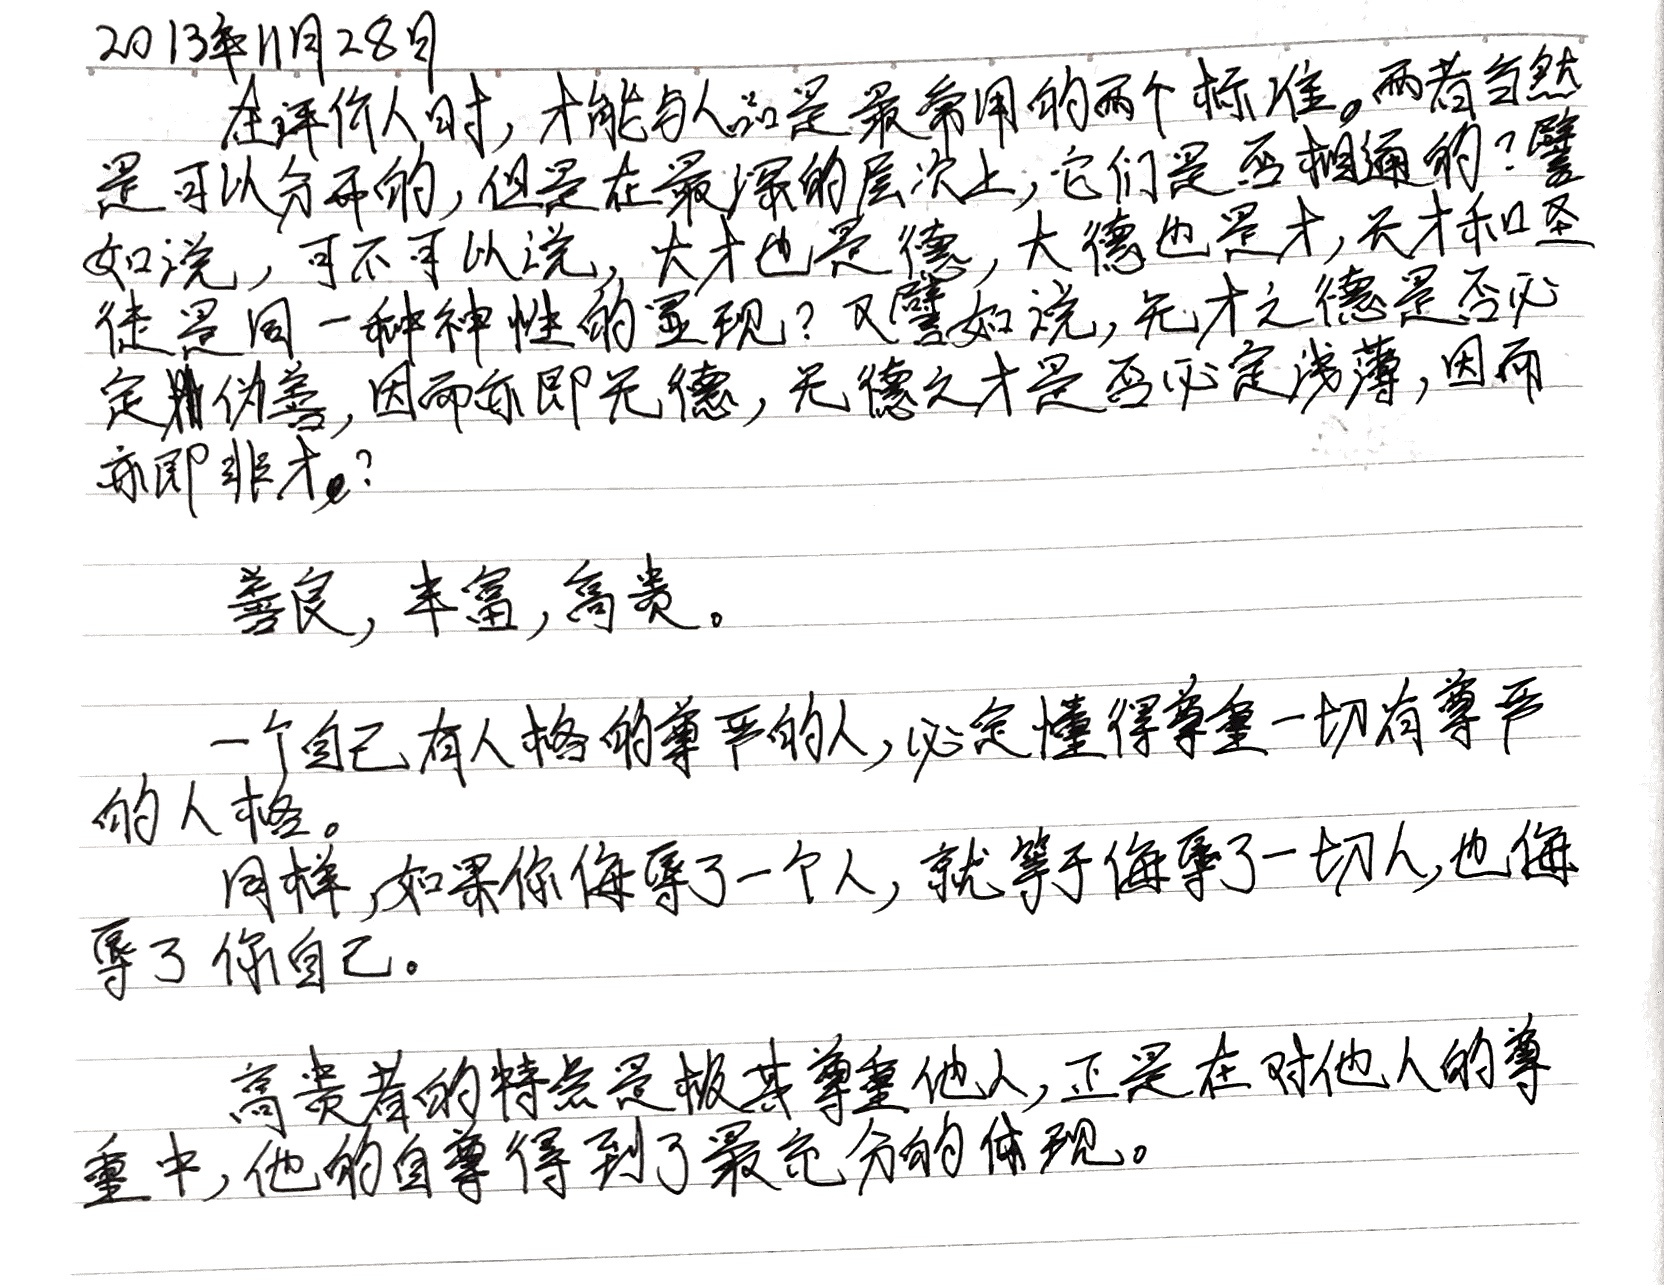 2013年11月28日
在评价人时，才能与人品是最常用的两个标准。两者当然
是可以分开的，但是在最深的层次上，它们是否相通的？譬
如说，可不可以说，大才也是德，大德也是才，天才和圣
徒是同一种神性的显现？又譬如说，无才之德是否必
定伪善，因而亦即无德，无德之才是否必定浅薄，因而
亦即非才？
善良，丰富，高贵。
一个自己有人格的尊严的人，必定懂得尊重一切有尊严
的人格。
同样，如果你侮辱了一个人，就等于侮辱了一切人，也侮
辱了你自己。
高贵者的特点是极其尊重他人，正是在对他人的尊
重中，他的自尊得到了最充分的体现。